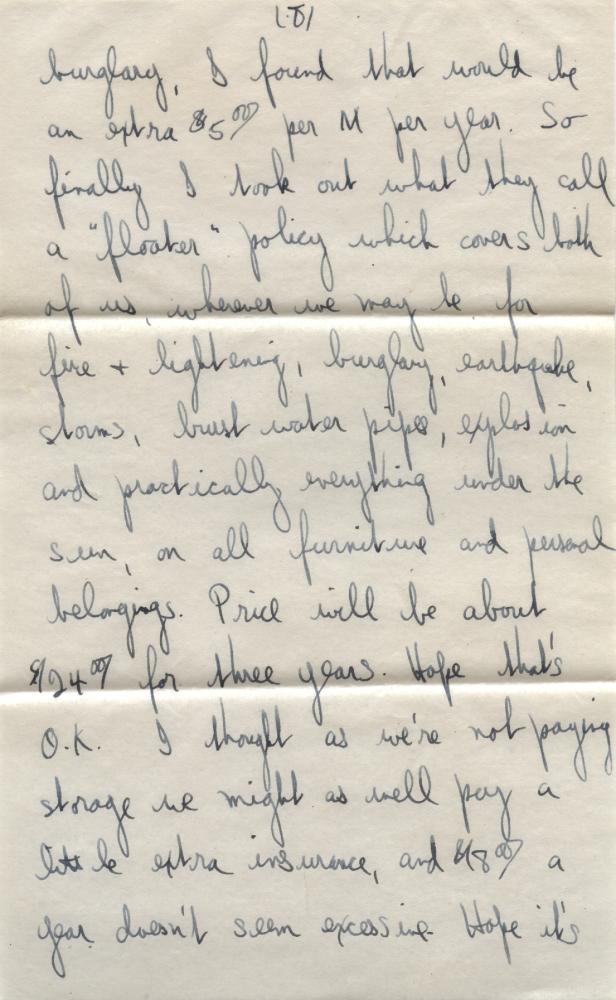 (8)
burglary, I found that would be
an extra $5.00 per M per year. So
finally I took out what they call
a "floater" policy which covers both
of us, wherever we may be for
fire + lightening, burglary, earthquake,
storms, burst water pipes, explosion
and practically everything under the
sun, on all furniture and personal
belongings. Price will be about
$24.00 for three years. Hope that's
O.K. I thought as we're not paying
storage we might as well pay a
little extra insurance, and $8.00 a
year doesn't seem excessive. Hope it's